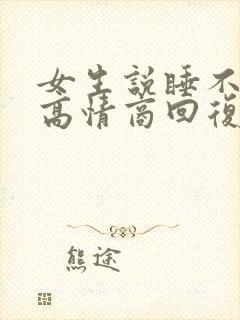 女生説睡不
高情商回復
熊途